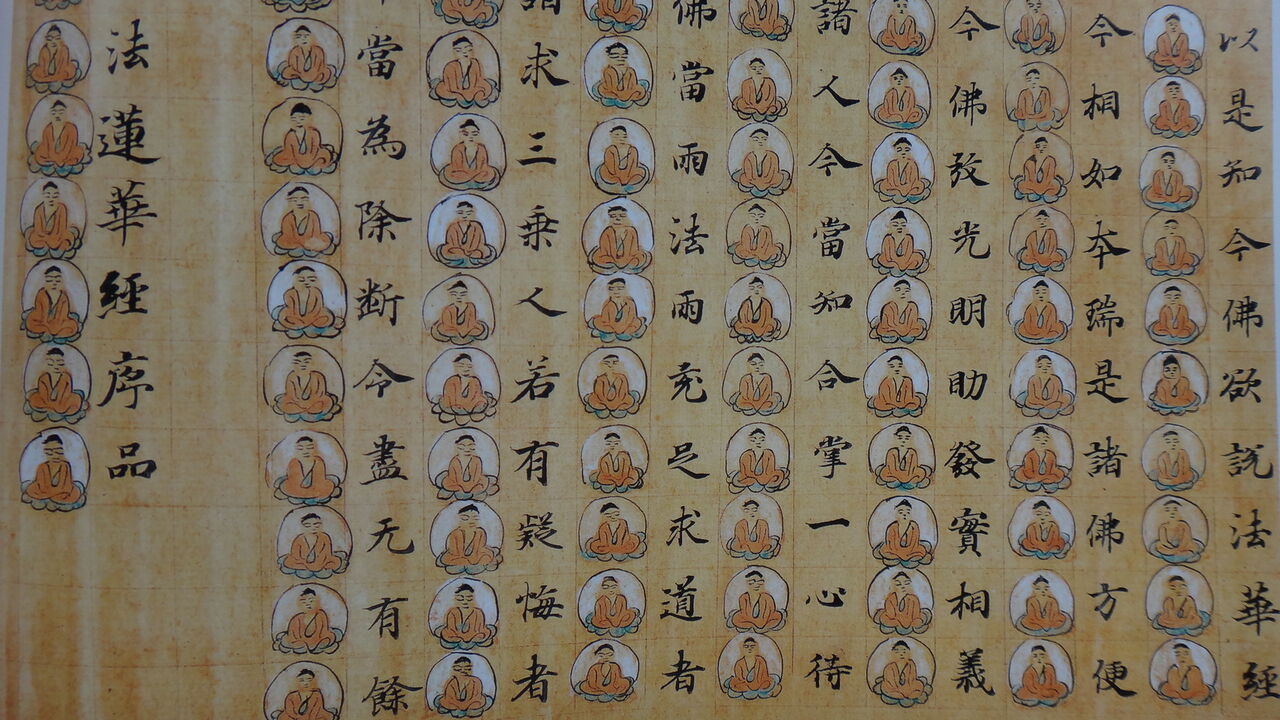 以是知今佛欲說法華經
今相如本瑞是諸佛方便
今佛放光明助發實相義
諸人今當知合掌一心待
佛當雨法雨充足求道者
諸求三乗人若有疑悔者
當為除断令盡无有餘
法蓮華經序品